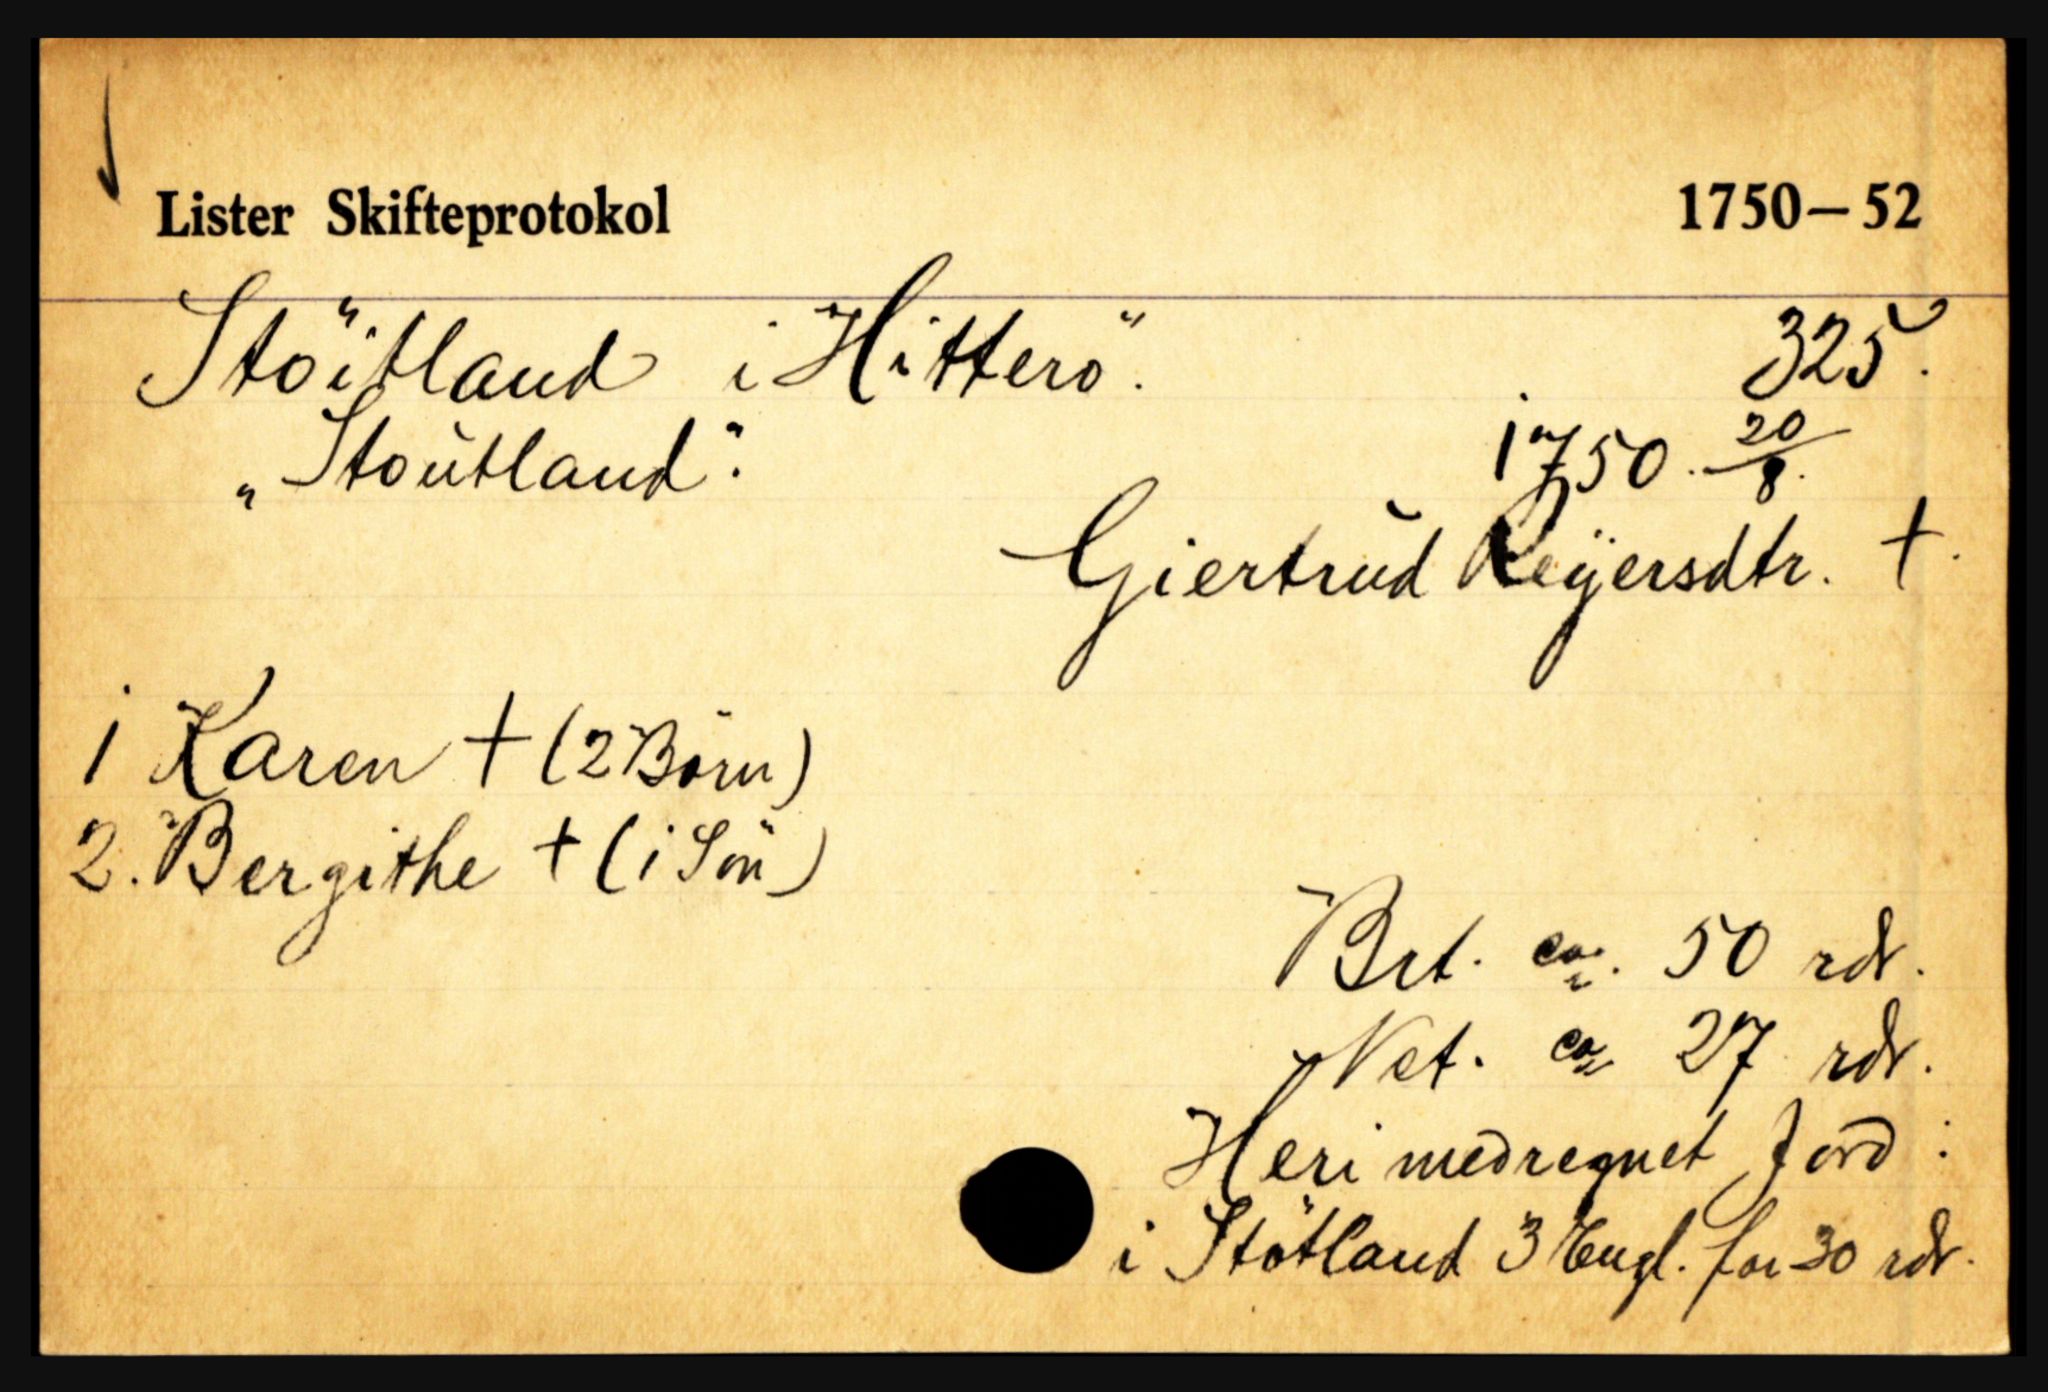 Lister Skifteprotokol 1750–52
Stöitland i Hitterö. 325.
„Stoutland". 1750. 20/8.
Giertrud Reÿersdtr. †.
1 Karen † (2 Börn)
2. Bergithe † (1 Sön)
Brt. ca. 50 rdr.
Net. ca 27 rdr.
Heri medregnet Jord:
i Stötland 3 Engl. for 30 rdr.